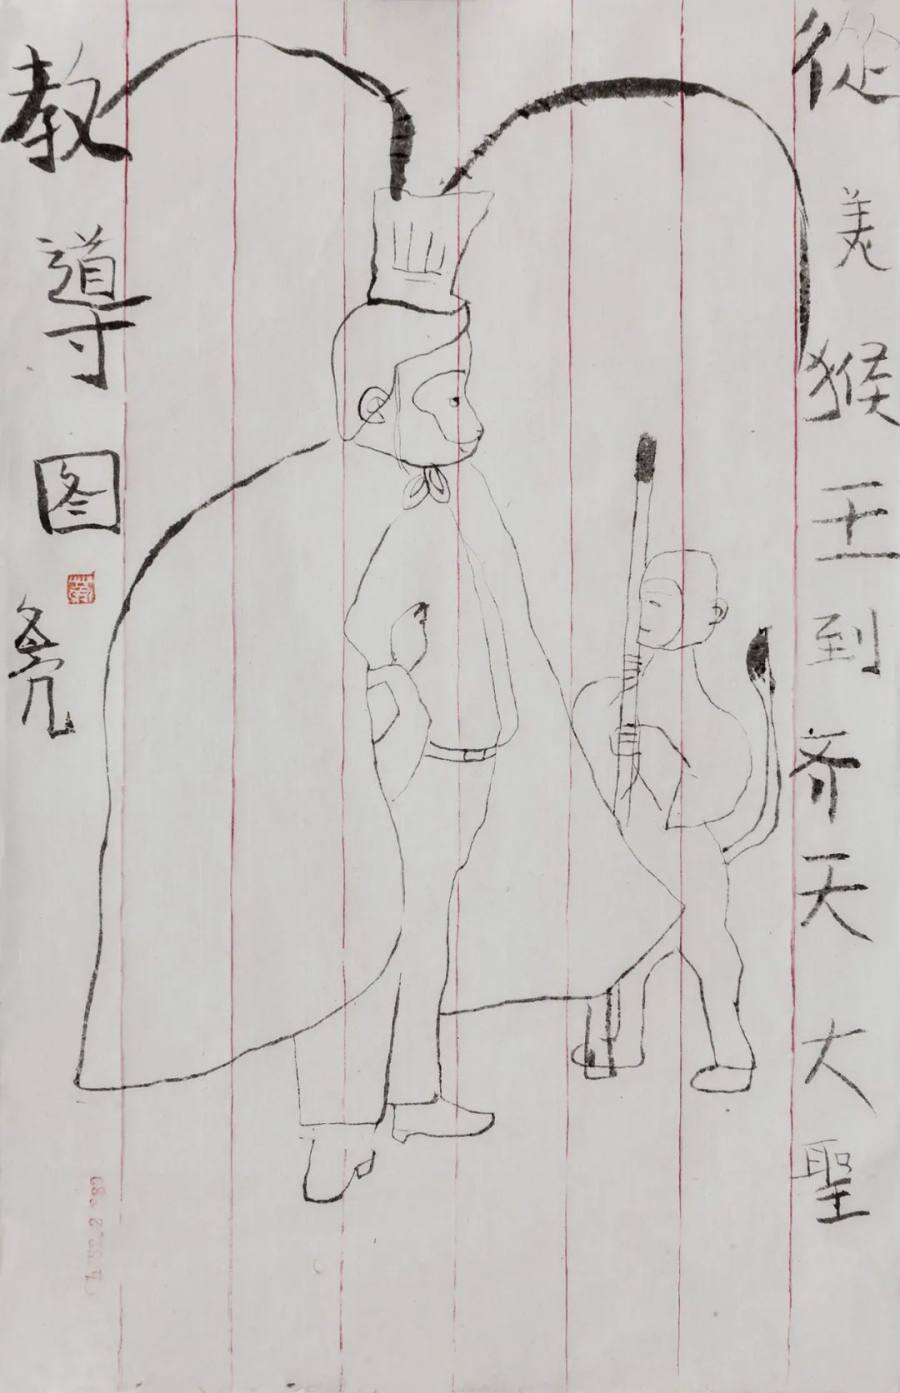 從美猴王到齐天大聖
教導图